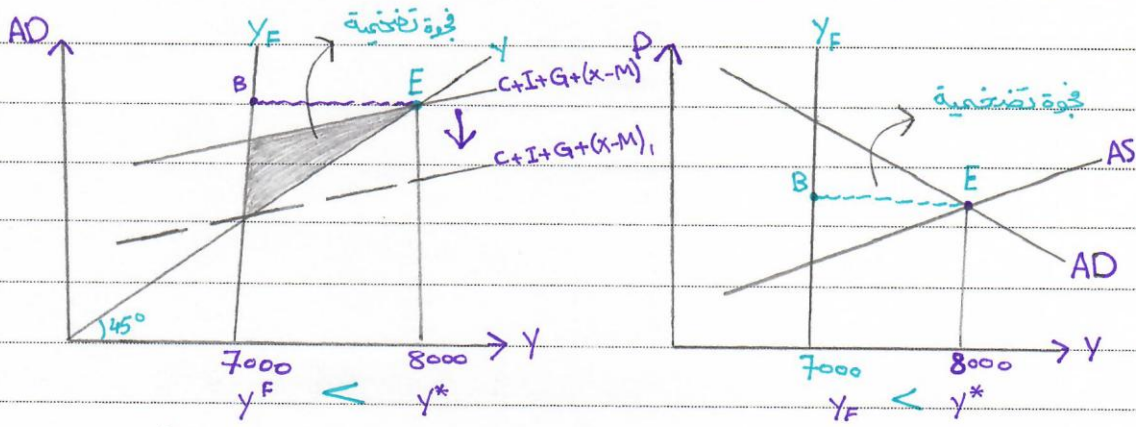 AD
Y_F
فجوة تضخمية
Y
B
E
C+I+G+(X-M)
C+I+G+(X-M)₁
45°
7000
8000
Y
Y^F < Y*
P
Y_F
فجوة تضخمية
AS
B
E
AD
7000
8000
Y
Y_F < Y*